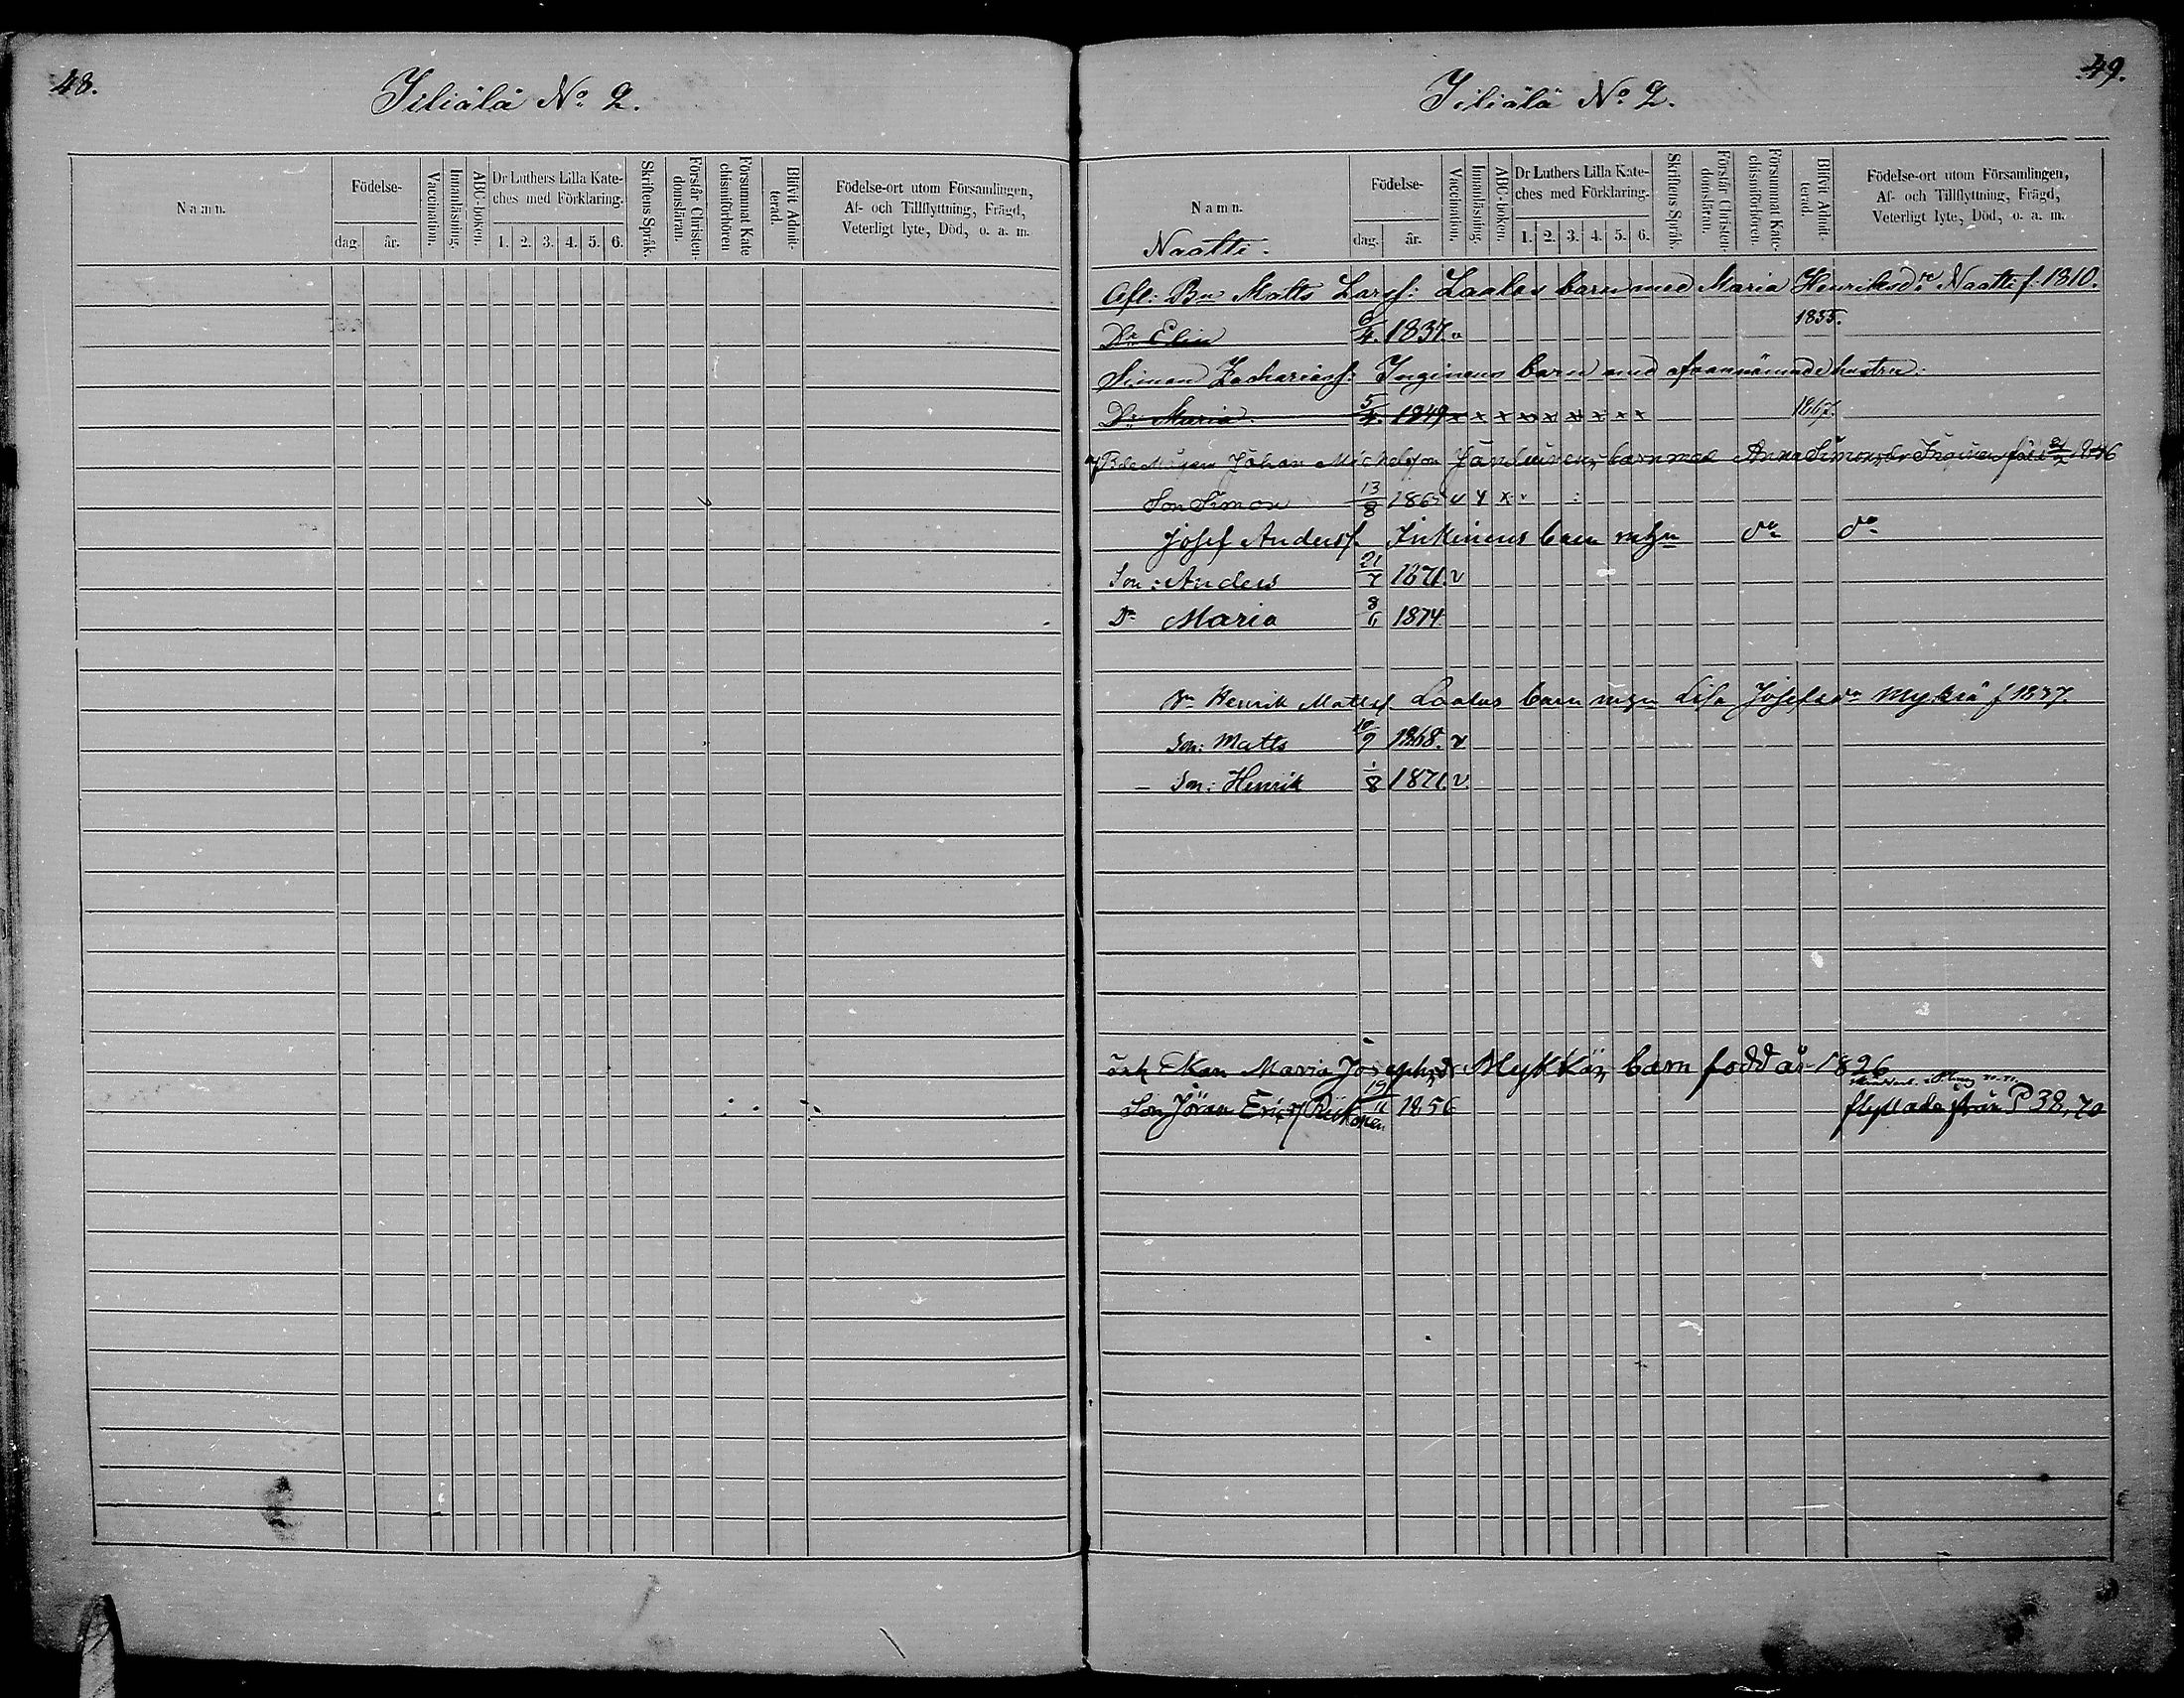 48.
Jiliälä No 2.
Namn.
Födelse-
dag.
år.
Vaccination.
Innanläsning.
ABC-boken.
Dr Luthers Lilla Kate-
ches med Förklaring.
1. 2. 3. 4. 5. 6.
Skriftens Språk.
Förstår Christen-
domsläran.
Försummat Kate
chismiförhören
Blifvit Admit-
terad.
Födelse-ort utom Församlingen,
Af- och Tillflyttning, Frägd,
Veterligt lyte, Död, o. a. m.
49.
Jiliälä No 2.
Namn.
Naatti.
Födelse-
dag.
år.
Vaccination.
Innanläsning.
ABC-boken.
Dr Luthers Lilla Kate-
ches med Förklaring.
1. 2. 3. 4. 5. 6.
Skriftens Språk.
Förstår Christen-
domsläran.
Försummat Kate-
chismiförhören.
Blifvit Admit-
terad.
Födelse-ort utom Församlingen,
Af- och Tillflyttning, Frägd,
Veterligt lyte, Död, o. a. m.
Afl: Bn Matts Larsf: Laalos barn med Maria Henriksdr Naatti f. 1810.
Dr Elin 6/4. 1837. v 1855.
Simon Zachariasf: Inginens barn med ofvannämnde hustru.
Dr Maria. 5/4. 1849 x x x x x x x x x 1867.
Johan Michelsson barn med Anna Simonsdr Inginen
Son Simon 13/8 186 v x x v
Josef Andersf. Inkinens barn mhu do do
Son: Anders 21/7 1871. v
Dr Maria 8/6 1874
Henrik Mattsf Laalos barn mhu Lisa Josefsdr Mykrä f 1837.
Son: Matts 10/9 1868. v
- Son: Henrik 1/8 1871. v.
Maria Josephsdr Mykkän barn född år 1826
Son Jöran Ericsf 19/11 1856 flyttade från P 38, 70